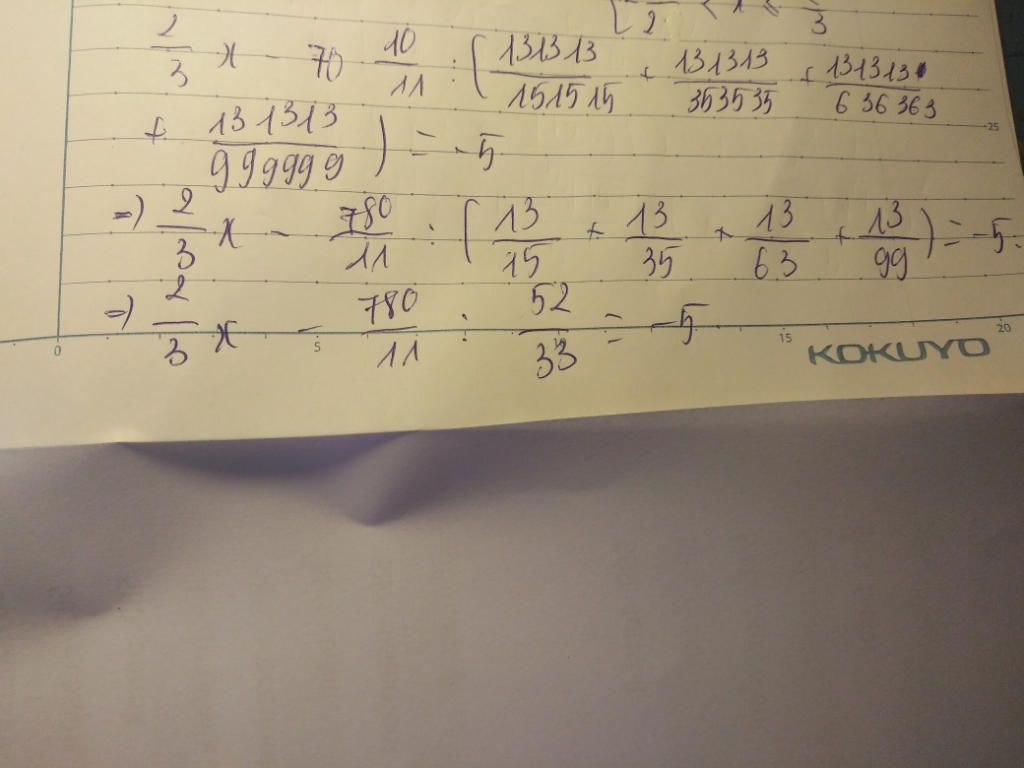 2 < x ≤ 3
2/3 x - 70 10/11 : (131313/151515 + 131313/353535 + 131313/636363
25
+ 131313/999999) = -5
=) 2/3 x - 780/11 : (13/15 + 13/35 + 13/63 + 13/99) = -5.
=) 2/3 x - 780/11 : 52/33 = -5
0 5 10 15 20
KOKUYO